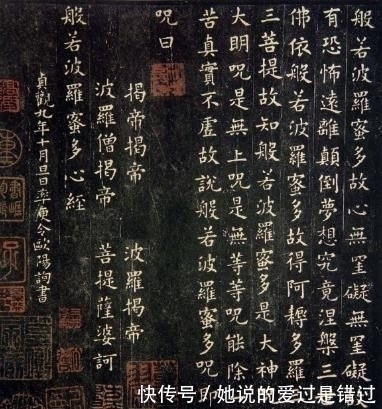 般若波羅蜜多故心無罣礙無罣礙故
有恐怖遠離顛倒夢想究竟涅槃三
佛依般若波羅蜜多故得阿耨多羅
三菩提故知般若波羅蜜多是大神
大明呪是無上呪是無等等呪能除
苦真實不虛故說般若波羅蜜多呪即
呪曰
揭帝揭帝 波羅揭帝
波羅僧揭帝 菩提薩婆訶
般若波羅蜜多心經
貞觀九年十月旦日率更令歐陽詢書
快传号/她说的爱过是错过